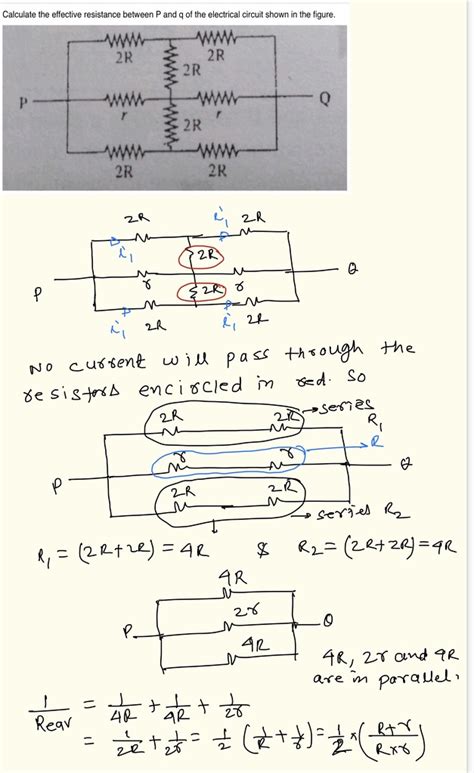 Calculate the effective resistance between P and q of the electrical circuit shown in the figure.
2R 2R
2R
P r r Q
2R
2R 2R
2R i1 2R
i1 2R
P r 2R r Q
i1 2R i1 2R
No current will pass through the
resistors encircled in red. So
2R 2R → series
R1
r r → R
P Q
2R 2R
→ series R2
R1 = (2R+2R) = 4R & R2 = (2R+2R) = 4R
4R
2r
P Q
4R
4R, 2r and 4R
are in parallel.
1/Reav = 1/4R + 1/4R + 1/2r
= 1/2R + 1/2r = 1/2 (1/R + 1/r) = 1/2 × (R+r / R×r)